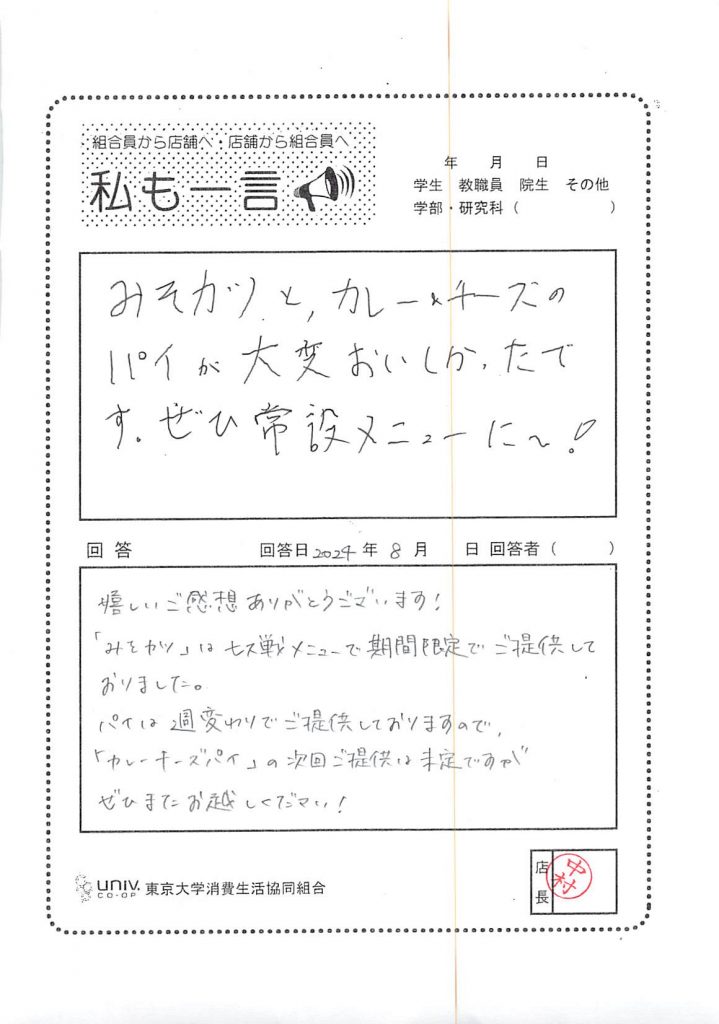 組合員から店舗へ・店舗から組合員へ
私も一言
年 月 日
学生 教職員 院生 その他
学部・研究科（ ）
みそカツと、カレー&チーズの
パイが大変おいしかったで
す。ぜひ常設メニューに〜!
回答 回答日 2024年 8月 日 回答者（ ）
嬉しいご感想ありがとうございます!
「みそカツ」は七大戦メニューで期間限定でご提供して
おりました。
パイは週変わりでご提供しておりますので、
「カレーチーズパイ」の次回ご提供は未定ですが
ぜひまたお越しください!
UNIV. CO-OP 東京大学消費生活協同組合
店長 中村